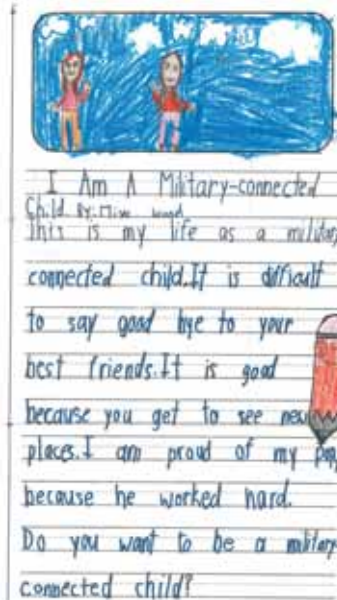 I Am A Military-connected
Child By:
This is my life as a military
connected child.It is difficult
to say good bye to your
best friends.It is good
because you get to see new
places.I am proud of my
because he worked hard.
Do you want to be a military
connected child?